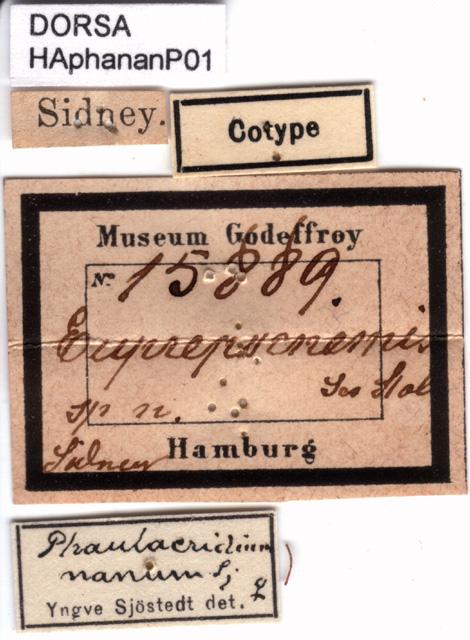 DORSA
HAphananP01
Sidney.
Cotype
Museum Godeffroy
No. 15889.
Euprepocnemis
Stål
sp n.
Sidney
Hamburg
Phaulacridium
nanum Sj
Yngve Sjöstedt det. ♀